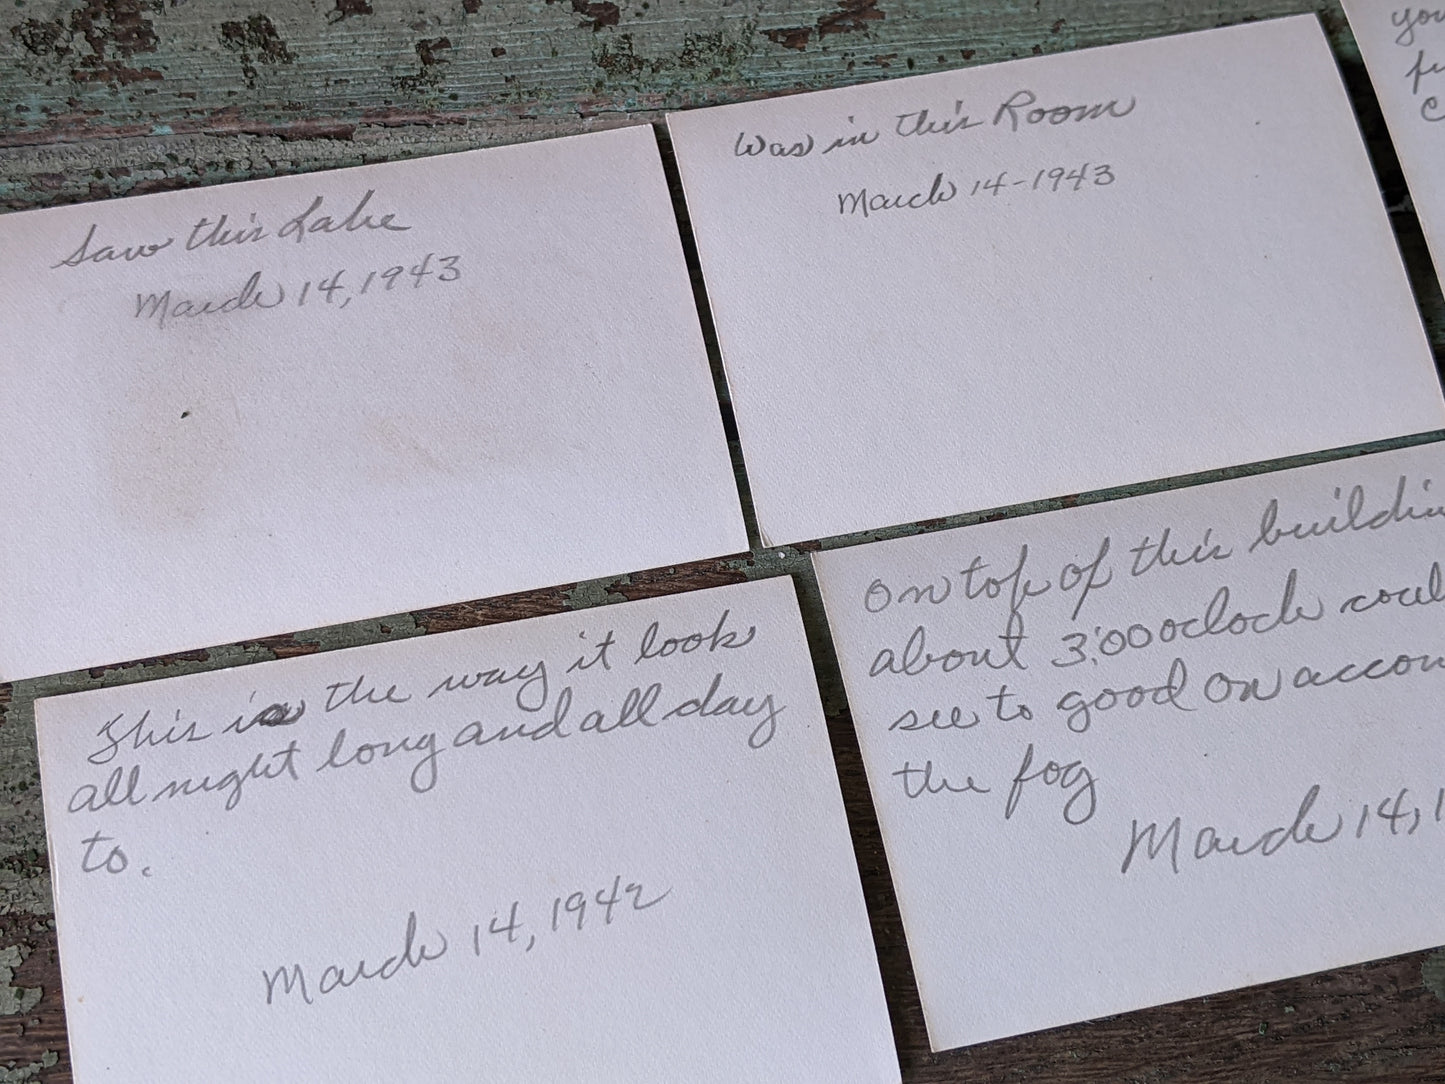 Saw this Lake
March 14, 1943
Was in this Room
March 14-1943
This is the way it look
all night long and all day
to.
March 14, 1942
On top of this buildin
about 3:00 oclock coul
see to good on accou
the fog
March 14, 1
you